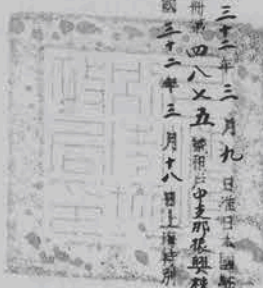 三十二年三月九日准日本國駐
冊第四八乂五號租戶中支那振興株
國三十二年三月十八日上海特別